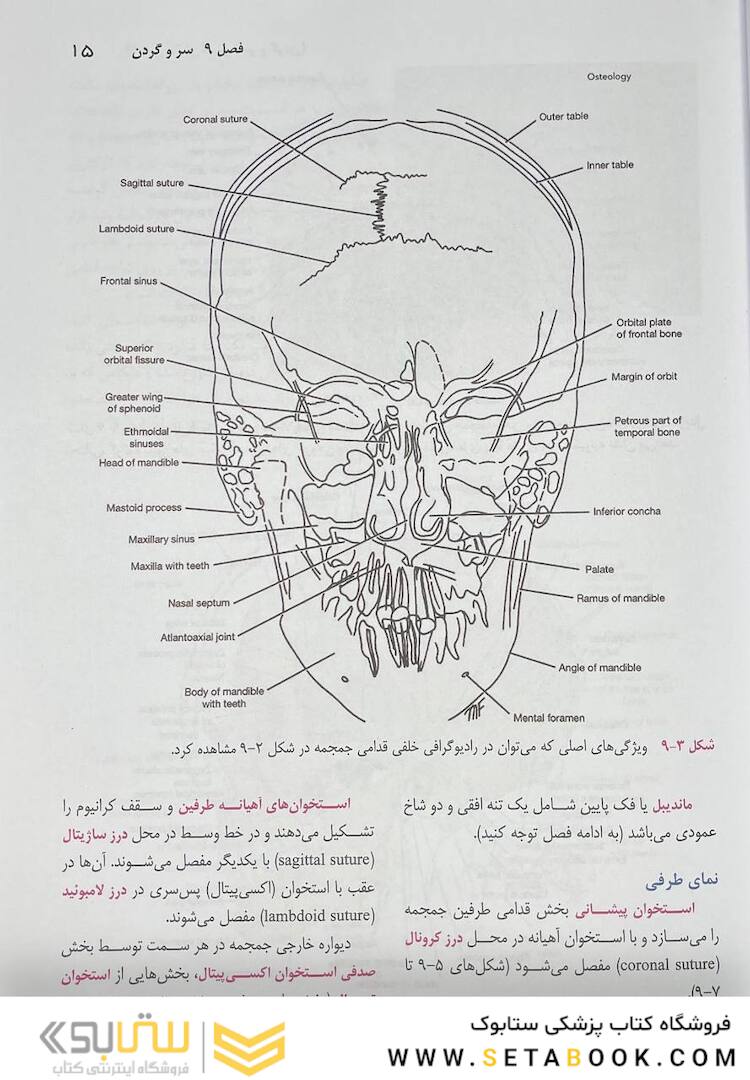 فصل ۹ سر و گردن ۱۵
Osteology
Coronal suture
Sagittal suture
Lambdoid suture
Frontal sinus
Superior
orbital fissure
Greater wing
of sphenoid
Ethmoidal
sinuses
Head of mandible
Mastoid process
Maxillary sinus
Maxilla with teeth
Nasal septum
Atlantoaxial joint
Body of mandible
with teeth
Outer table
Inner table
Orbital plate
of frontal bone
Margin of orbit
Petrous part of
temporal bone
Inferior concha
Palate
Ramus of mandible
Angle of mandible
Mental foramen
شکل ۳-۹ ویژگی‌های اصلی که می‌توان در رادیوگرافی خلفی قدامی جمجمه در شکل ۲-۹ مشاهده کرد.
ماندیبل یا فک پایین شامل یک تنه افقی و دو شاخ
عمودی می‌باشد (به ادامه فصل توجه کنید).
نمای طرفی
استخوان پیشانی بخش قدامی طرفین جمجمه
را می‌سازد و با استخوان آهیانه در محل درز کرونال
(coronal suture) مفصل می‌شود (شکل‌های ۵-۹ تا
۷-۹).
استخوان‌های آهیانه طرفین و سقف کرانیوم را
تشکیل می‌دهند و در خط وسط در محل درز ساژیتال
(sagittal suture) با یکدیگر مفصل می‌شوند. آن‌ها در
عقب با استخوان (اکسی‌پیتال) پس‌سری در درز لامبوئید
(lambdoid suture) مفصل می‌شوند.
دیواره خارجی جمجمه در هر سمت توسط بخش
صدفی استخوان اکسی‌پیتال، بخش‌هایی از استخوان
فروشگاه کتاب پزشکی ستابوک
WWW.SETABOOK.COM
ستابوک
فروشگاه اینترنتی کتاب